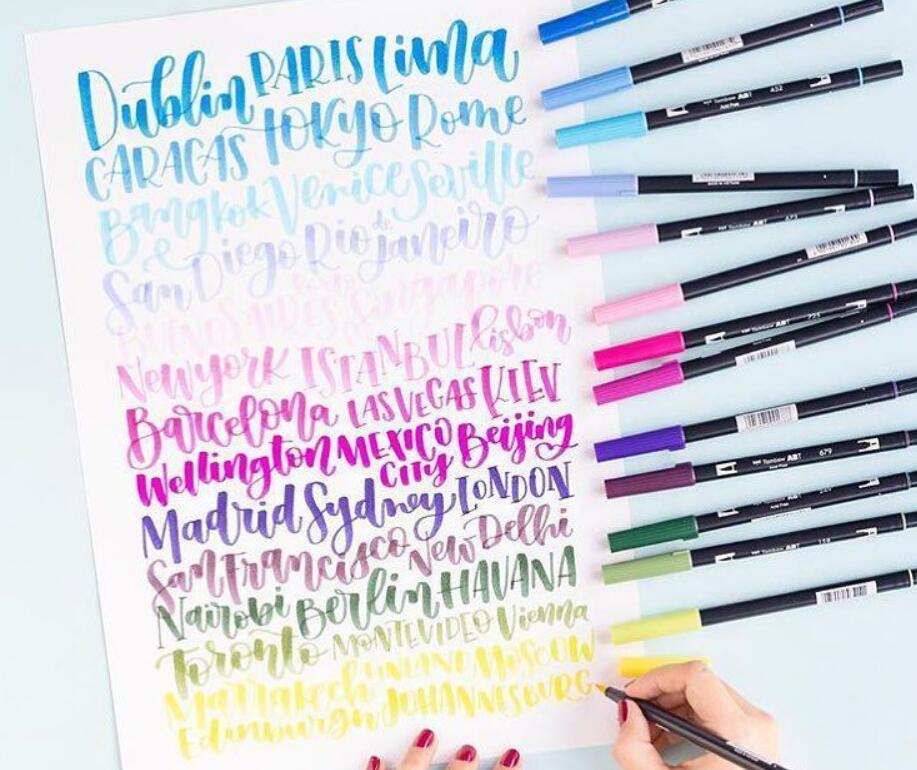 Dublin PARIS Lima
CARACAS TOKYO Rome
Bangkok Venice Seville
San Diego Rio de Janeiro
BUENOS AIRES Singapore
New york ISTANBUL lisbon
Barcelona LAS VEGAS KIEV
Wellington MEXICO CITY Beijing
Madrid Sydney LONDON
San Francisco New Delhi
Nairobi Berlin HAVANA
Toronto MONTEVIDEO Vienna
Marrakech MOSCOW
Edinburgh JOHANNESBURG
Tombow ABT 452
Tombow ABT 673
Tombow ABT
Tombow ABT 679
Tombow ABT 158